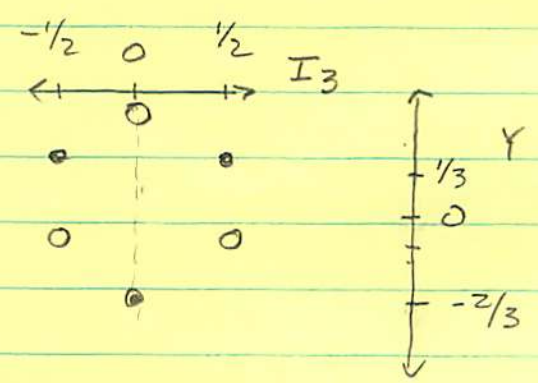 -1/2 0 1/2
I3
Y
1/3
0
-2/3